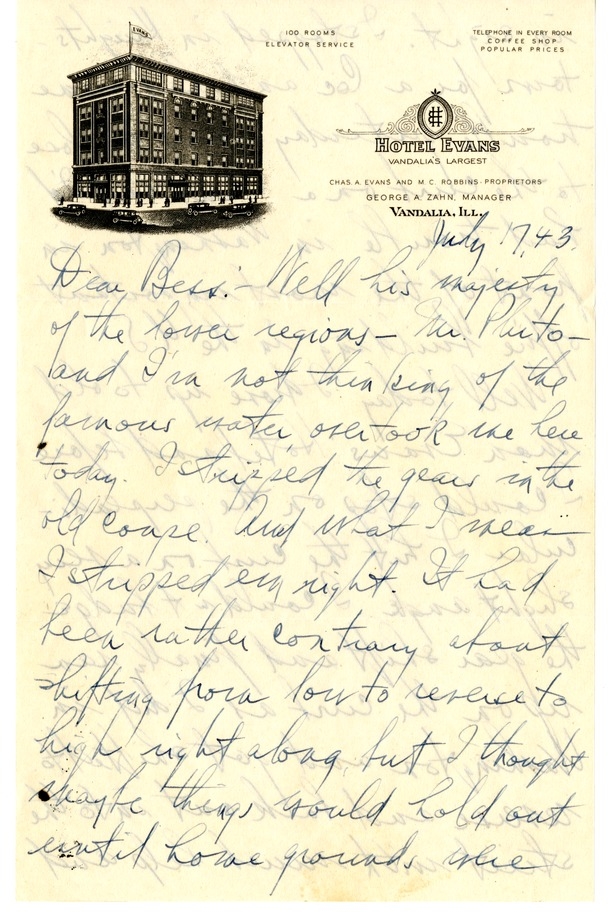 EVANS
100 ROOMS
ELEVATOR SERVICE
TELEPHONE IN EVERY ROOM
COFFEE SHOP
POPULAR PRICES
HOTEL EVANS
VANDALIA'S LARGEST
CHAS. A. EVANS AND M. C. ROBBINS - PROPRIETORS
GEORGE A. ZAHN, MANAGER
VANDALIA, ILL.
July 17, 43.
Dear Bess:- Well his majesty
of the lower regions- Mr. Pluto-
and I'm not thinking of the
famous water, overtook me here
today. I stripped the gears in the
old coupe. And what I mean
I stripped em right. It had
been rather contrary about
shifting from low to reverse to
high right along, but I thought
maybe things would hold out
until home grounds were